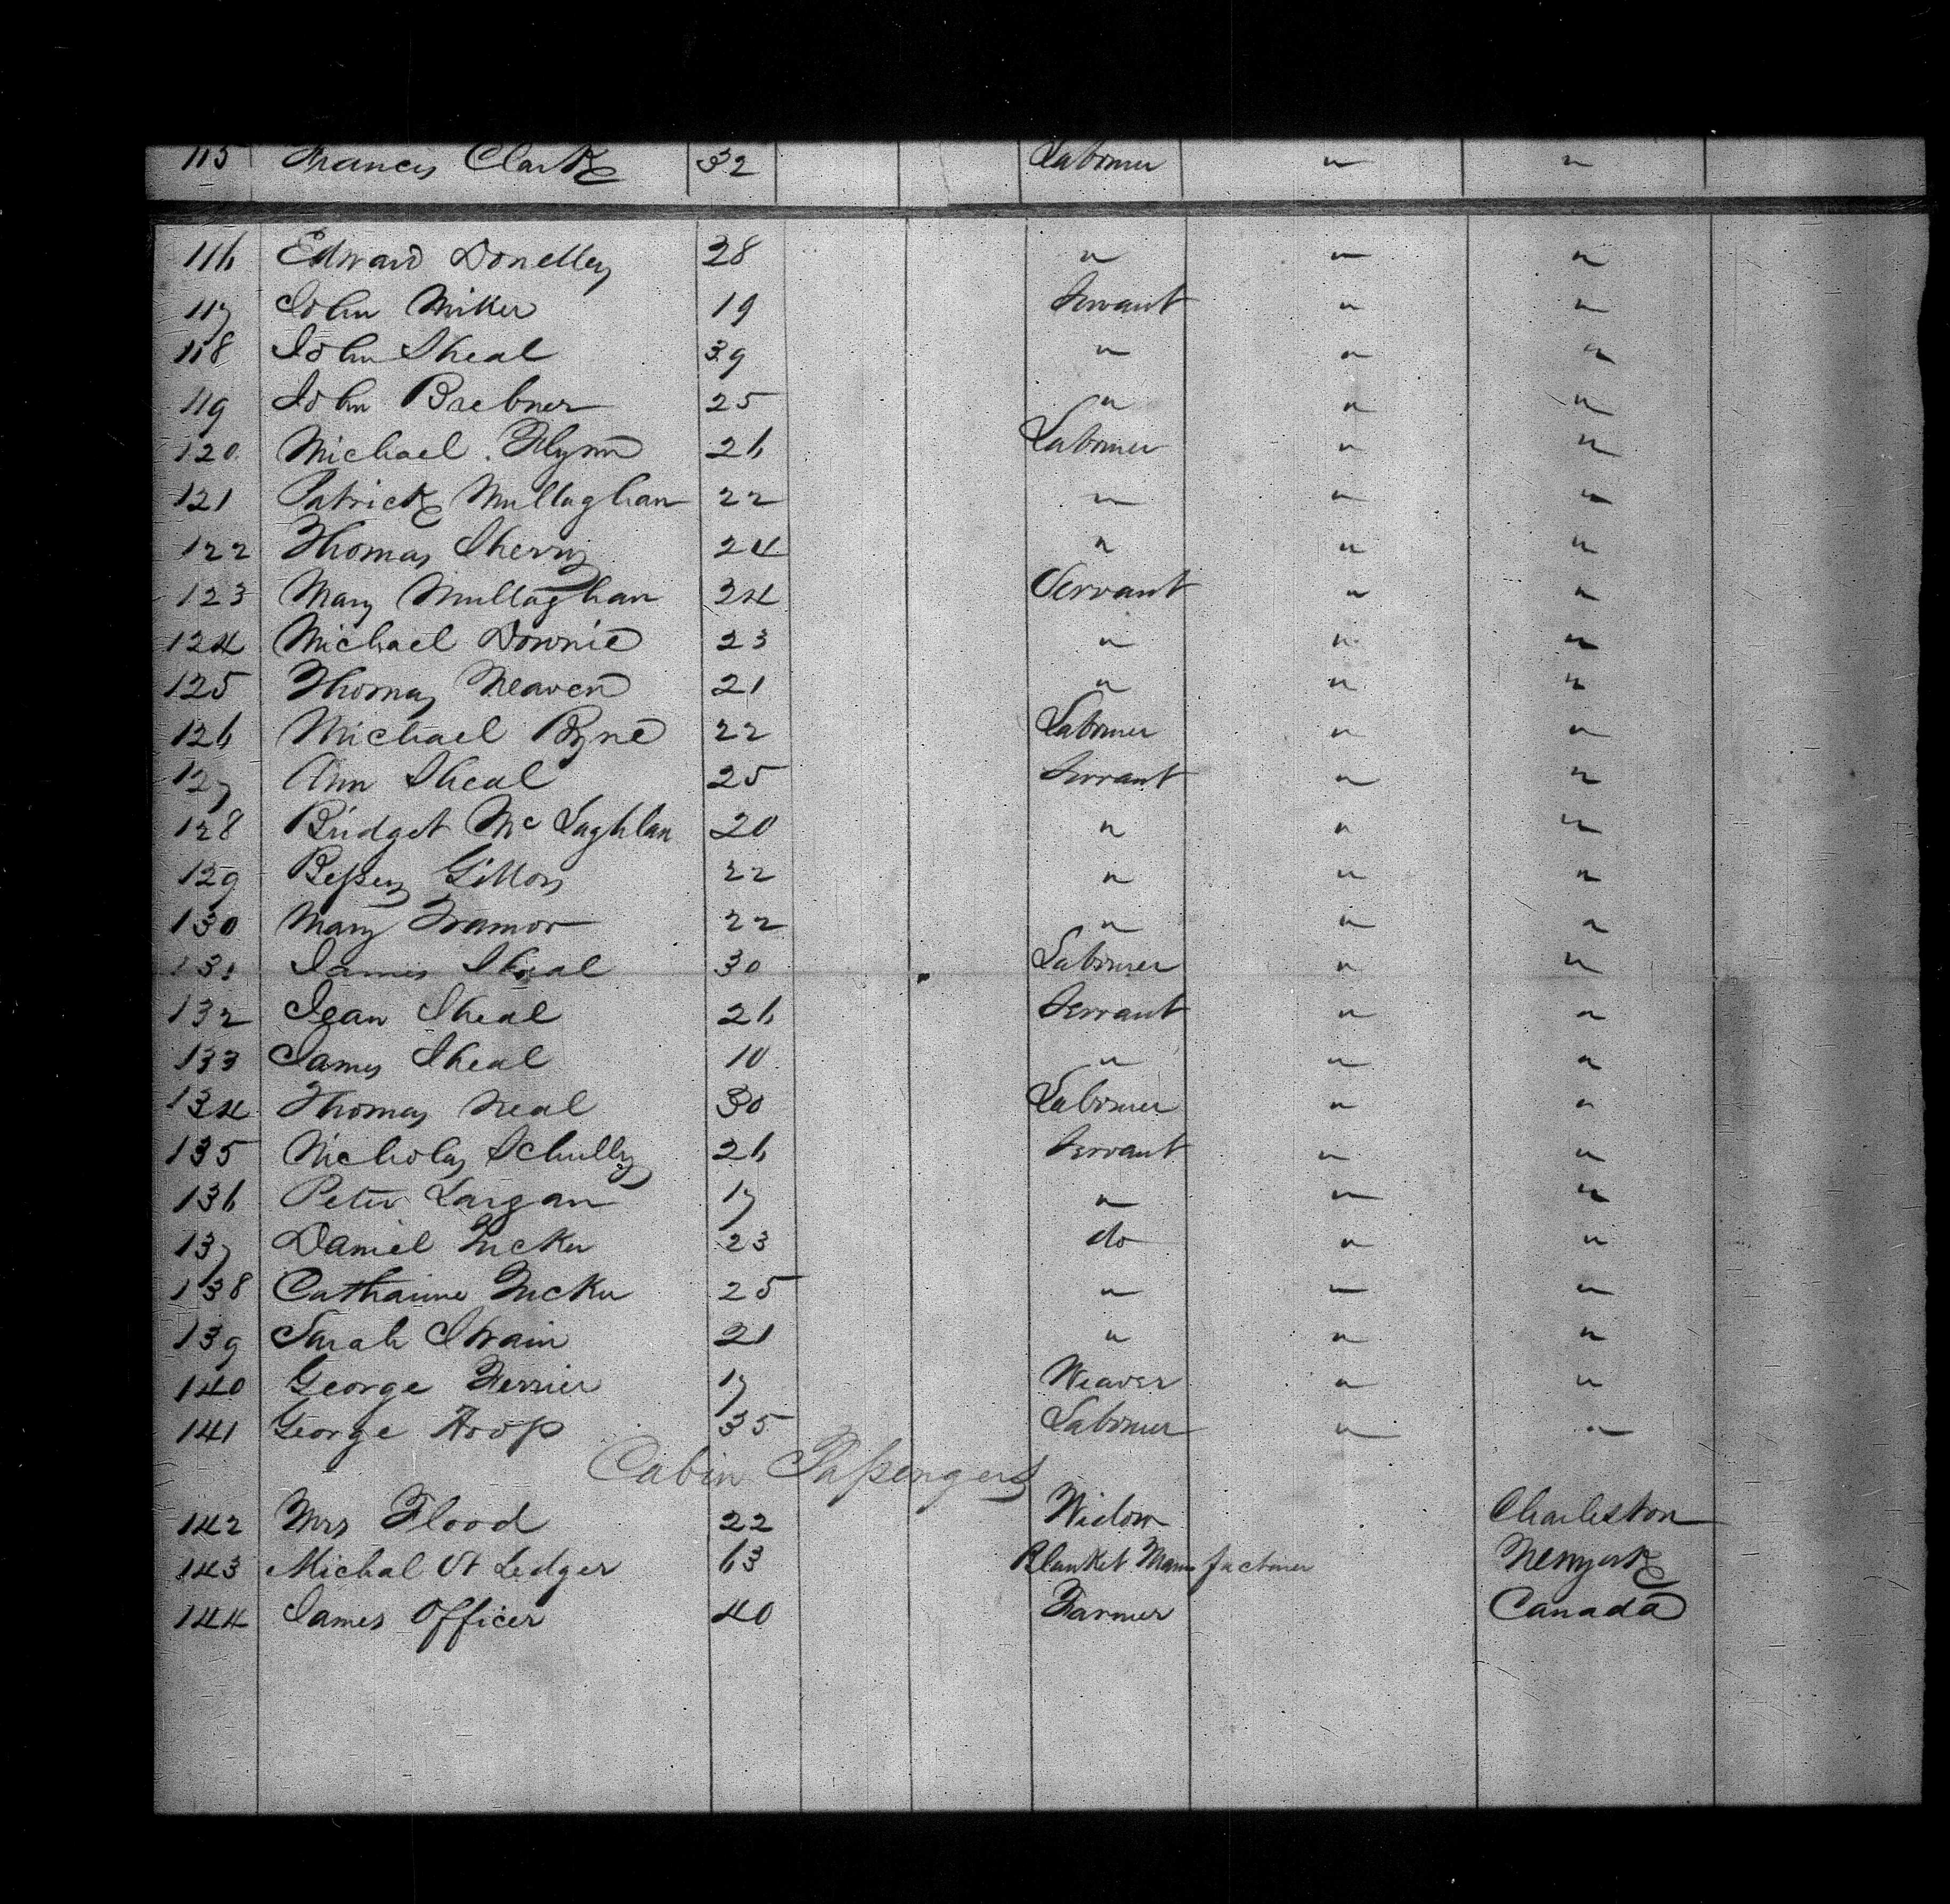 115 Francis Clark 32 Labourer " "
116 Edward Donelley 28 " " "
117 John Miker 19 Servant " "
118 John Sheal 39 " " "
119 John Brebner 25 " " "
120 Michael Flynn 26 Labourer " "
121 Patrick Mullaghan 22 " " "
122 Thomas Sherry 24 " " "
123 Mary Mullaghan 24 Servant " "
124 Michael Downie 23 " " "
125 Thomas Neaven 21 " " "
126 Michael Byne 22 Labourer " "
127 Ann Sheal 25 Servant " "
128 Bridget Mc Laghlan 20 " " "
129 Bessey 22 " " "
130 Mary Tramor 22 " " "
131 James Sheal 30 Labourer " "
132 Jean Sheal 26 Servant " "
133 James Sheal 10 " " "
134 Thomas Neal 30 Labourer " "
135 Nicholas Schully 26 Servant " "
136 Peter Largan 17 " " "
137 Daniel 23 do " "
138 Catharine 25 " " "
139 Sarah Strain 21 " " "
140 George Ferrier 17 Weaver " "
141 George Hoop 35 Labourer " "
Cabin Passengers
142 Mrs Flood 22 Widow Charleston
143 Michal St Ledger 63 Blanket Manufacturer Newyork
144 James Officer 40 Farmer Canada